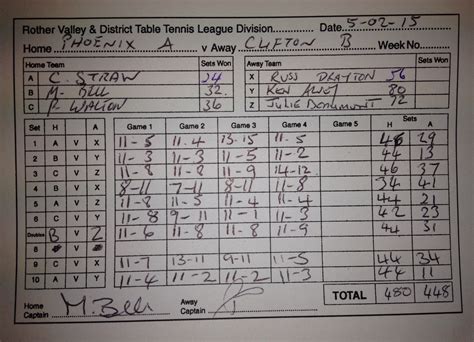 Rother Valley & District Table Tennis League Division............ Date 5-02-15
Home PHOENIX A v Away CLIFTON B Week No.
Home Team Sets Won Away Team Sets Won
A C. STRAW 24 X RUSS DRAYTON 56
B M. BELL 32 Y KEN 80
C P. WALTON 36 Z JULIE 72
Set H A Game 1 Game 2 Game 3 Game 4 Game 5 H Sets A
1 A V X 11-5 11-4 13-15 11-5 46 29
2 B V Y 11-3 11-3 11-5 11-2 44 13
3 C V X 11-8 11-8 11-9 14-12 46 37
4 B V X 8-11 7-11 8-11 11-8 34 41
5 A V Y 11-5 11-5 11-7 11-4 44 21
6 C V Y 11-8 9-11 11-1 11-3 42 23
Doubles B V Z 11-6 11-8 11-9 11-8 44 31
8 V
9 C V X 11-7 13-11 9-11 11-5 44 34
10 A V Y 11-4 11-2 11-2 11-3 44 11
Home Captain M. Bell Away Captain TOTAL 480 448